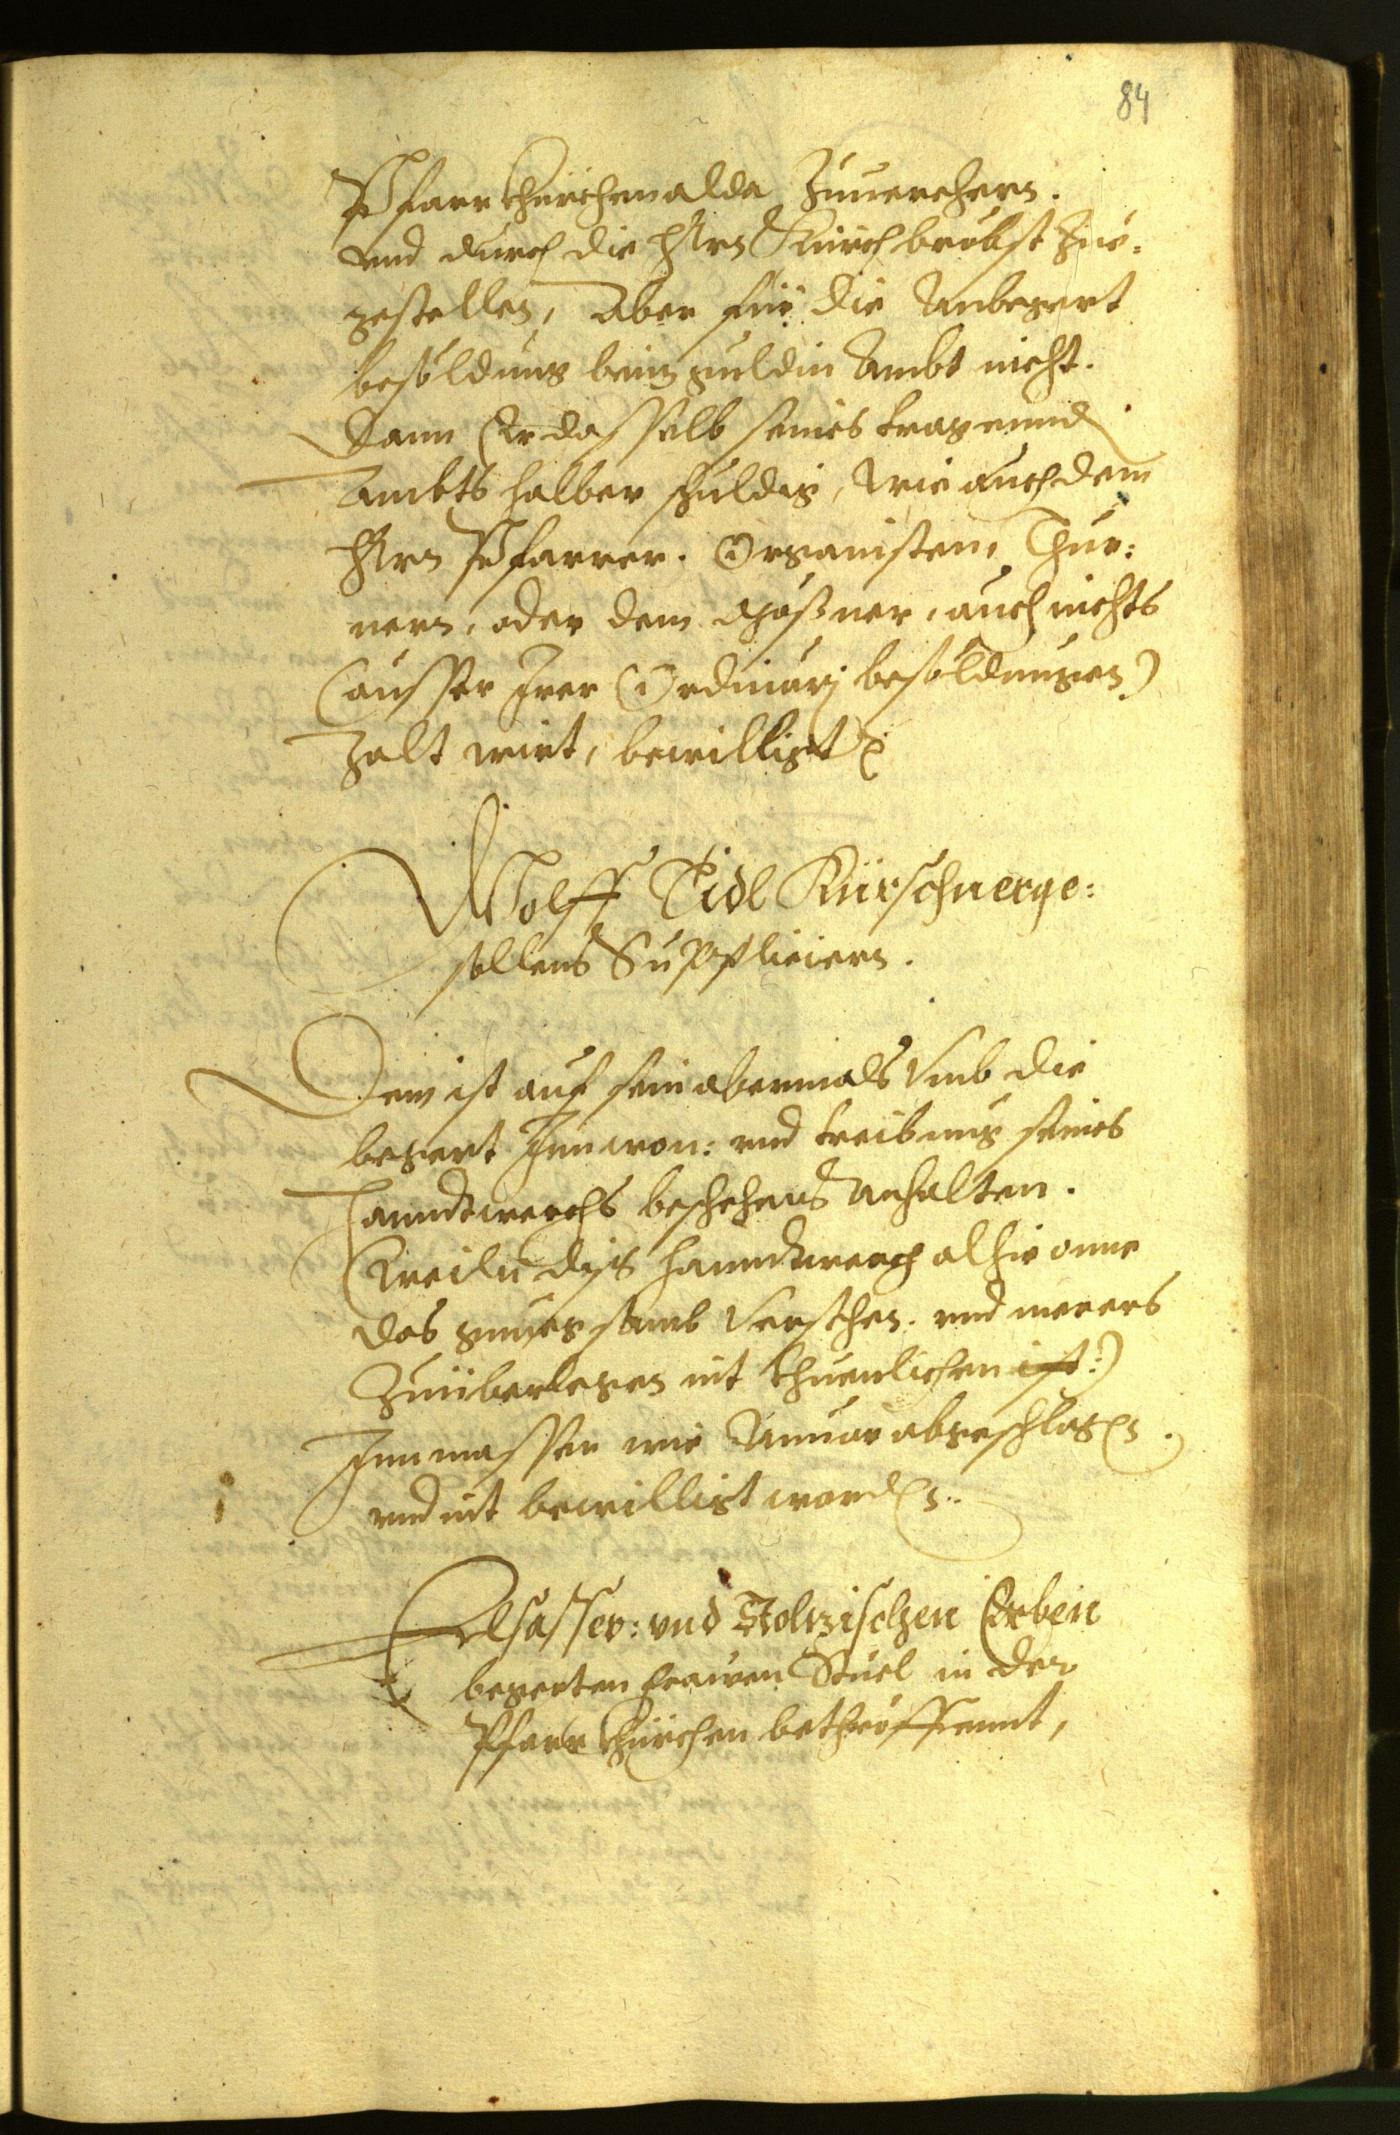 84
Pfarrkhürchen alda Zuuerehern.
vnd durch die Hrn Kürchbröbst Zue-
gestellen, Aber für die Anbegert
besoldung beim guldin Ambt nicht.
Dann Er dasselb seines tragennd
Ambts halber schuldig, Wie auch dem
Hrn Pfarrer. Organisten, Thur:
nern, oder dem Mößner, auch nichts
(ausser Irer Ordinarj besoldungen)
Zalt wirt, bewilligt
Wolff Tidl Kürschnerge:
sellens Suppliciern.
Dem ist auf sein abermals Vmb die
begert Innwon: vnd treibung seines
Hanndtwerchs beschehens Anhalten.
(Weiln diß Hanndtwerch alhie onne
das gnueg samb Versehen. vnd merers
Zuüberlegen nit thuenlichen ist:)
Inmassen wie Zuuor abgeschlagen.
vnd nit bewilligt worden.
Elsasser: vnd Stoltzischen Erben
begerten frawen Stuel in der
Pfarrkhürchen bethröffennt,